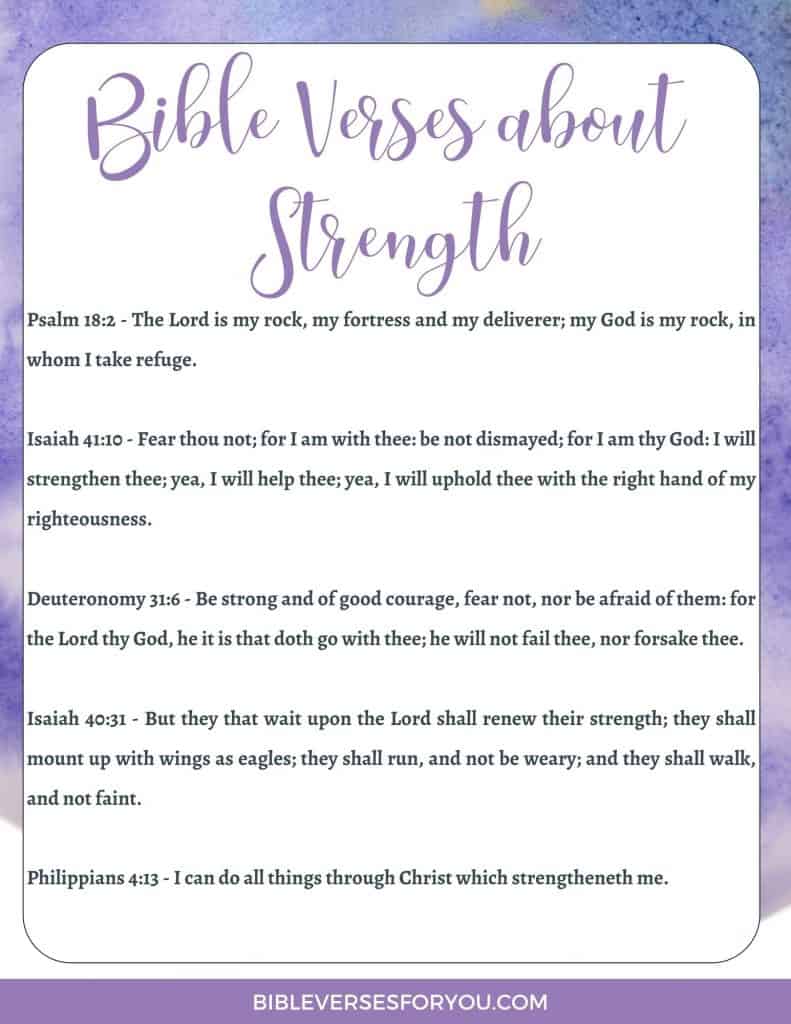 Bible Verses about
Strength
Psalm 18:2 - The Lord is my rock, my fortress and my deliverer; my God is my rock, in
whom I take refuge.
Isaiah 41:10 - Fear thou not; for I am with thee: be not dismayed; for I am thy God: I will
strengthen thee; yea, I will help thee; yea, I will uphold thee with the right hand of my
righteousness.
Deuteronomy 31:6 - Be strong and of good courage, fear not, nor be afraid of them: for
the Lord thy God, he it is that doth go with thee; he will not fail thee, nor forsake thee.
Isaiah 40:31 - But they that wait upon the Lord shall renew their strength; they shall
mount up with wings as eagles; they shall run, and not be weary; and they shall walk,
and not faint.
Philippians 4:13 - I can do all things through Christ which strengtheneth me.
BIBLEVERSESFORYOU.COM